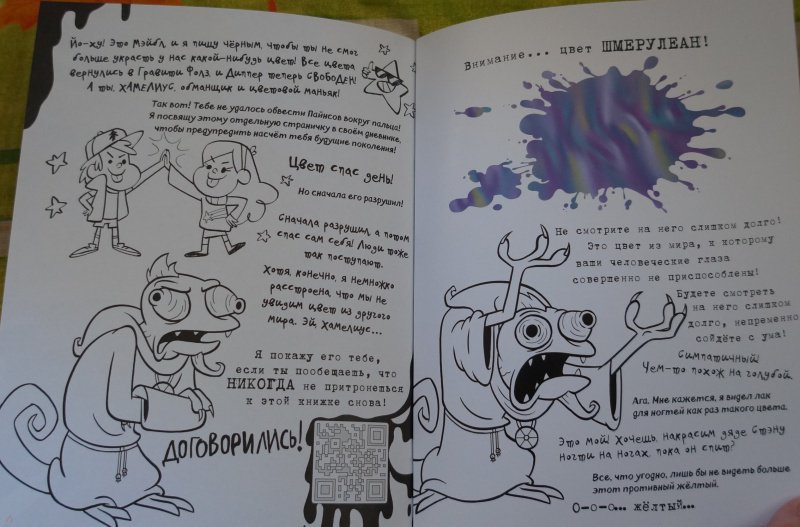 Йо-ху! Это Мэйбл, и я пишу чёрным, чтобы ты не смог
больше украсть у нас какой-нибудь цвет! Все цвета
вернулись в Гравити Фолз, и Диппер теперь СВОБОДЕН!
А ты, ХАМЕЛИУС, обманщик и цветовой маньяк!
Так вот! Тебе не удалось обвести Пайнсов вокруг пальца!
Я посвящу этому отдельную страничку в своём дневнике,
чтобы предупредить насчёт тебя будущие поколения!
Цвет спас день!
Но сначала его разрушил!
Сначала разрушил, а потом
спас сам себя! Люди тоже
так поступают.
Хотя, конечно, я немножко
расстроена, что мы не
увидим цвет из другого
мира. Эй, Хамелиус...
Я покажу его тебе,
если ты пообещаешь, что
НИКОГДА не притронешься
к этой книжке снова!
ДОГОВОРИЛИСЬ!
Внимание... цвет ШМЕРУЛЕАН!
Не смотрите на него слишком долго!
Это цвет из мира, к которому
ваши человеческие глаза
совершенно не приспособлены!
Будете смотреть
на него слишком
долго, непременно
сойдёте с ума!
Симпатичный!
Чем-то похож на голубой.
Ага. Мне кажется, я видел лак
для ногтей как раз такого цвета.
Это мой! Хочешь, накрасим дяде Стэну
ногти на ногах, пока он спит?
Все, что угодно, лишь бы не видеть больше
этот противный жёлтый.
О-о-о... жёлтый...